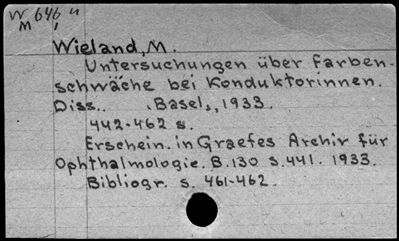 W 646 u
M
Wieland, M.
Untersuchungen über Farben-
schwäche bei Konduktorinnen.
Diss.. Basel., 1933.
442-462 s.
Erschein. in Graefes Archiv für
Ophthalmologie. B.130 S.441. 1933.
Bibliogr. s. 461-462.